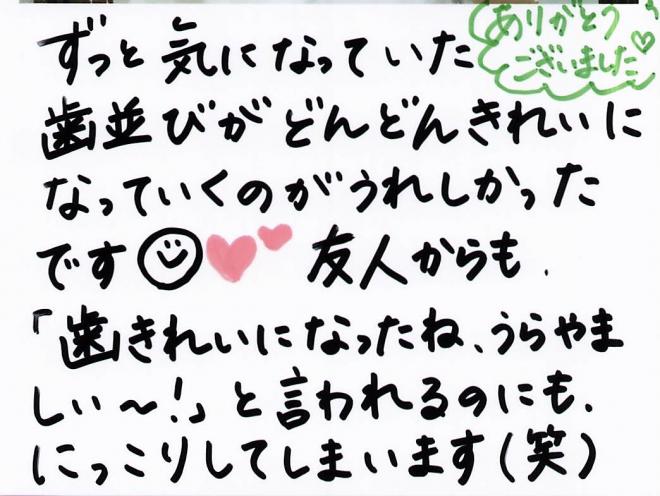 ありがとう
ございました♡
ずっと気になっていた
歯並びがどんどんきれいに
なっていくのがうれしかった
です 友人からも、
「歯きれいになったね、うらやま
しい〜!」と言われるのにも、
にっこりしてしまいます(笑)